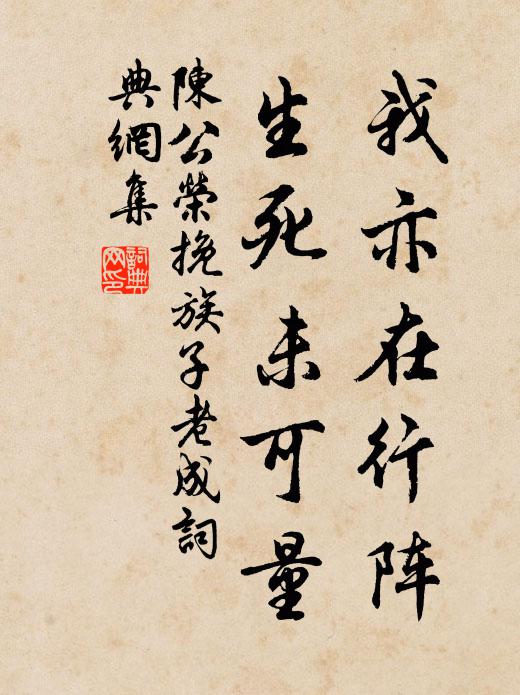 我亦在行阵
生死未可量
陳公榮挽族子老成詞
典網集
詞典网印